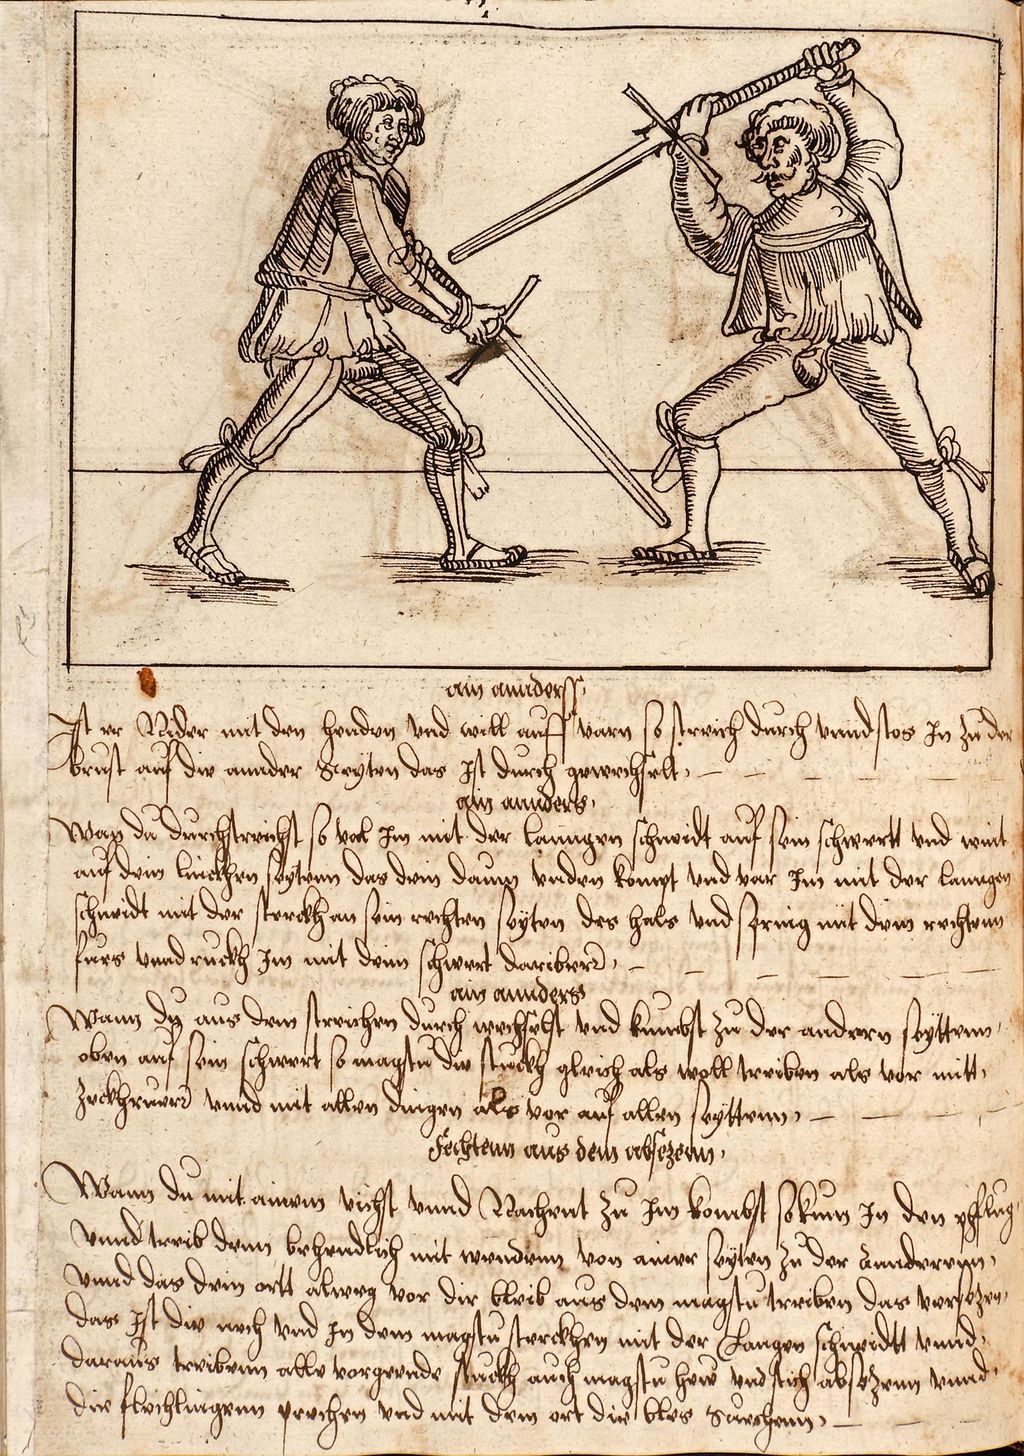 ain annderss
Ist er Nider mit den henden vnd will auff varn so streich durch vnnd stos In zu der
brust auf die annder Seyten das Ist durch gewechselt
ain annders
Wan du durchstreichst so val Im mit der lanngen schneidt auf sein schwertt vnd wint
auf dein linckhen seytenn das dein daum vnden kompt vnd var Im mit der lanngen
schneidt mit der sterckh an sein rechten seyten des hals vnd spring mit dem rechtenn
fues vnnd ruckh Im mit dein schwert dariberr
ain annders
Wann du aus dem streichen durch wechselst vnd kumbst zu der andern seyttenn
oben auf sein schwert so magstu die stuckh gleich als woll treiben als vor mitt
zeckhruerr vnnd mit allen dingen als vor auf allen seyttenn
Fechtenn aus dem absezenn
Wann du mit ainem vichst vnnd Nachent zu Im kombst so kum In den pfflug
vnnd treib denn behendlich mit wendenn von ainer seyten zu der Annderenn
vnnd das dein ortt alweg vor dir bleib aus dem magstu treiben das versezen
das Ist die vch vnd In dem magstu sterckhen mit der Langen schneidtt vnnd
daraus treibenn alle vorgeende stuckh auch magstu hew vnd stich absezenn vnnd
die flechlingenn prechen vnd mit dem ort die bles Suechenn